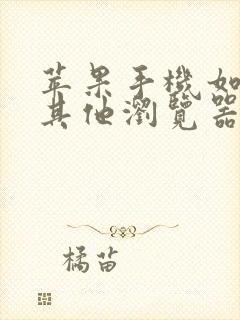 苹果手機如
其他瀏覽器
橘苗